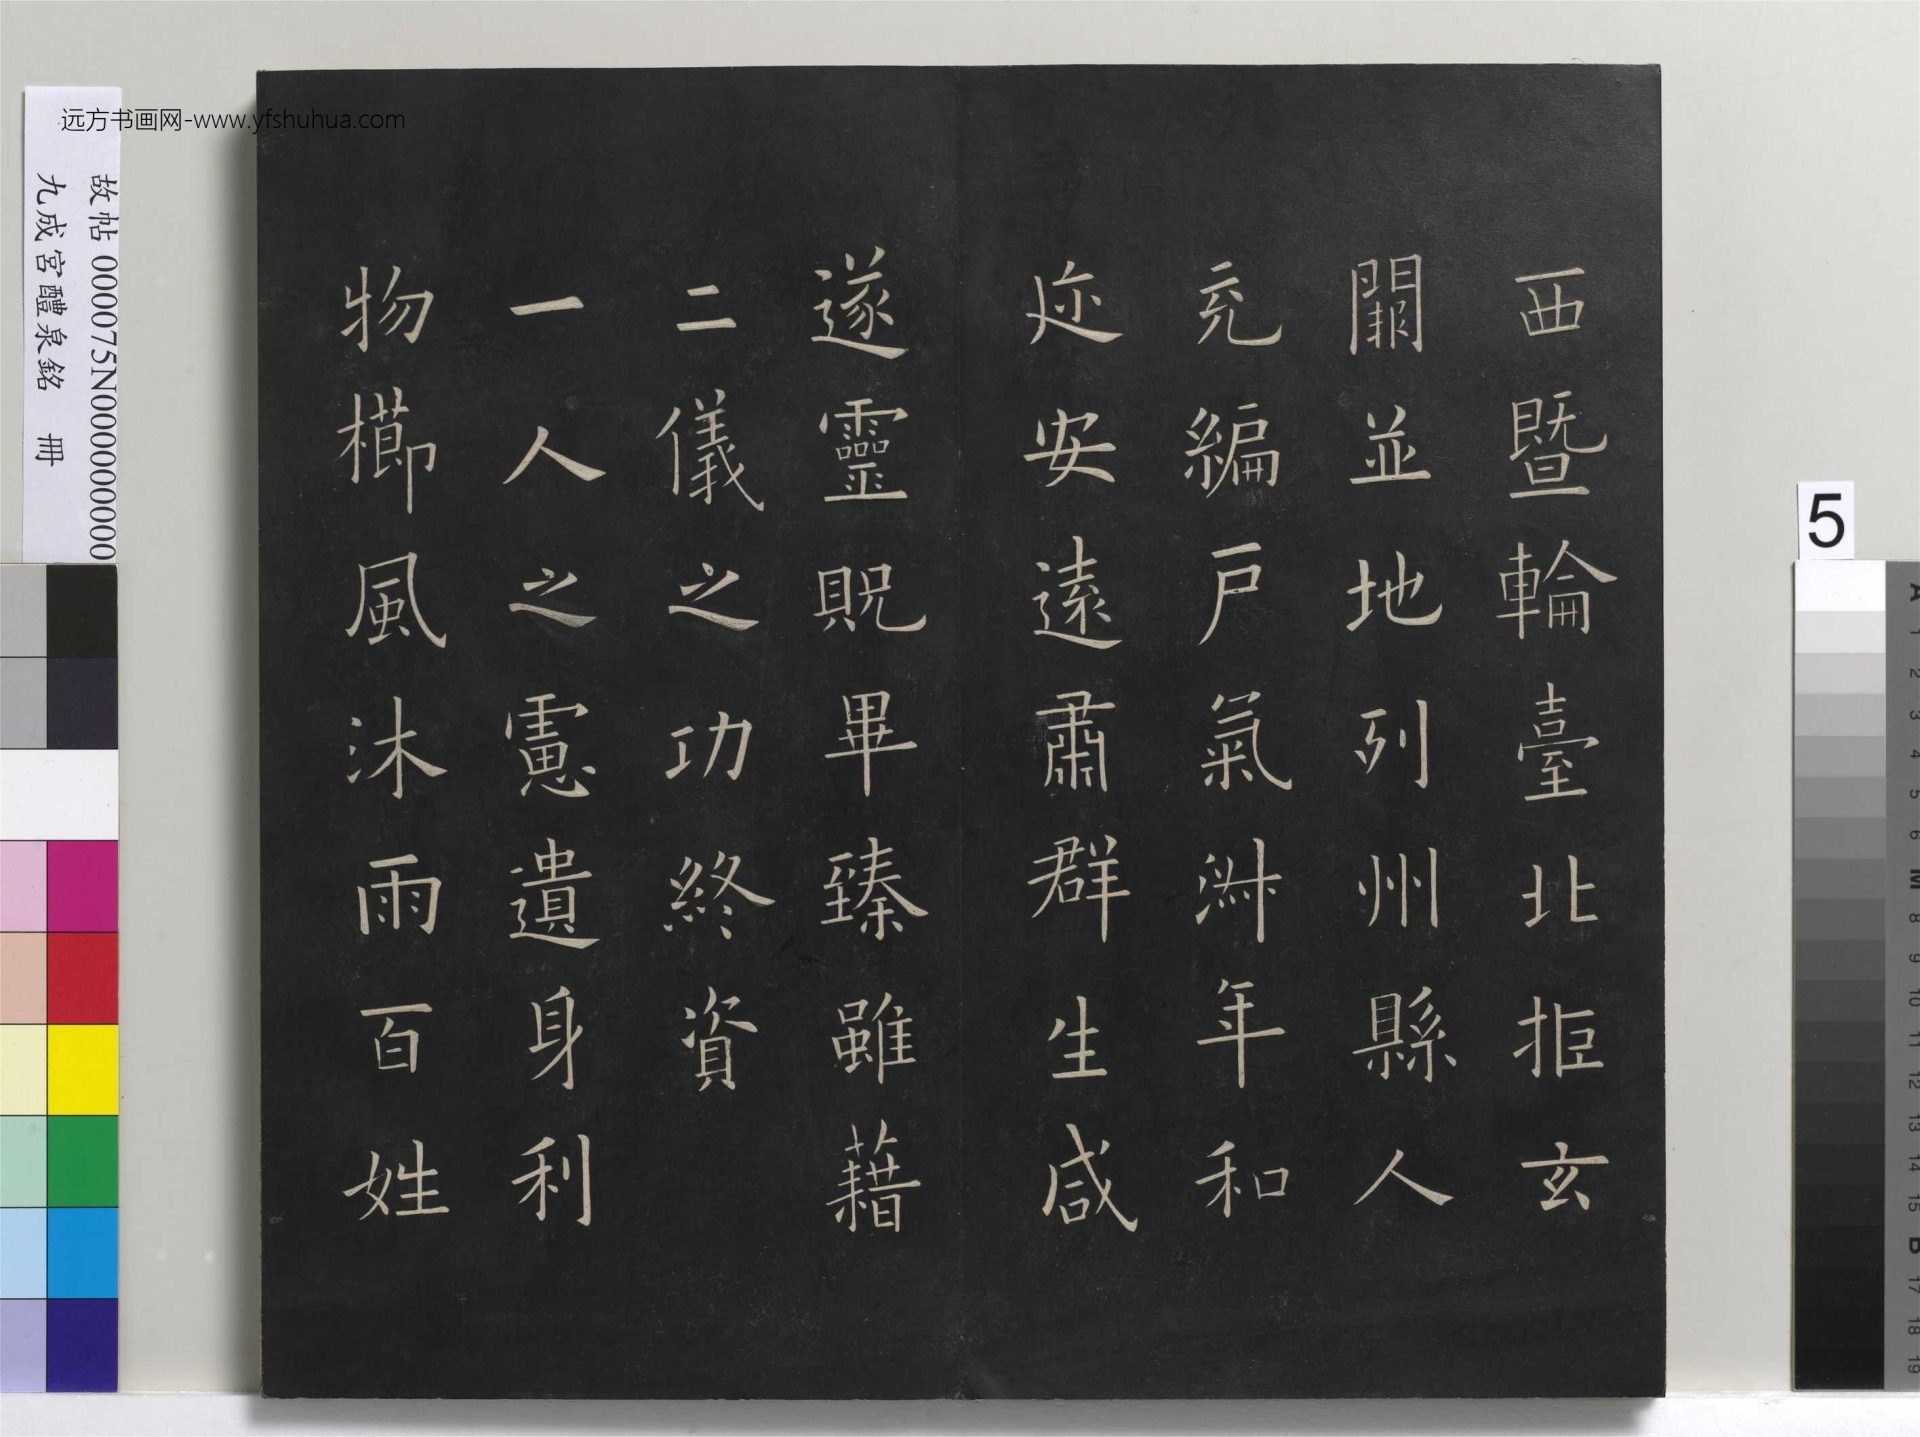 远方书画网-www.yfshuhua.com
故帖 000075N000000000
九成宮醴泉銘 冊
西暨輪臺北拒玄
闕並地列州縣人
充編戶氣淑年和
迩安遠肅群生咸
遂靈貺畢臻雖藉
二儀之功終資
一人之慮遺身利
物櫛風沐雨百姓
5
A 1 2 3 4 5 6 M 8 9 10 11 12 13 14 15 B 17 18 19